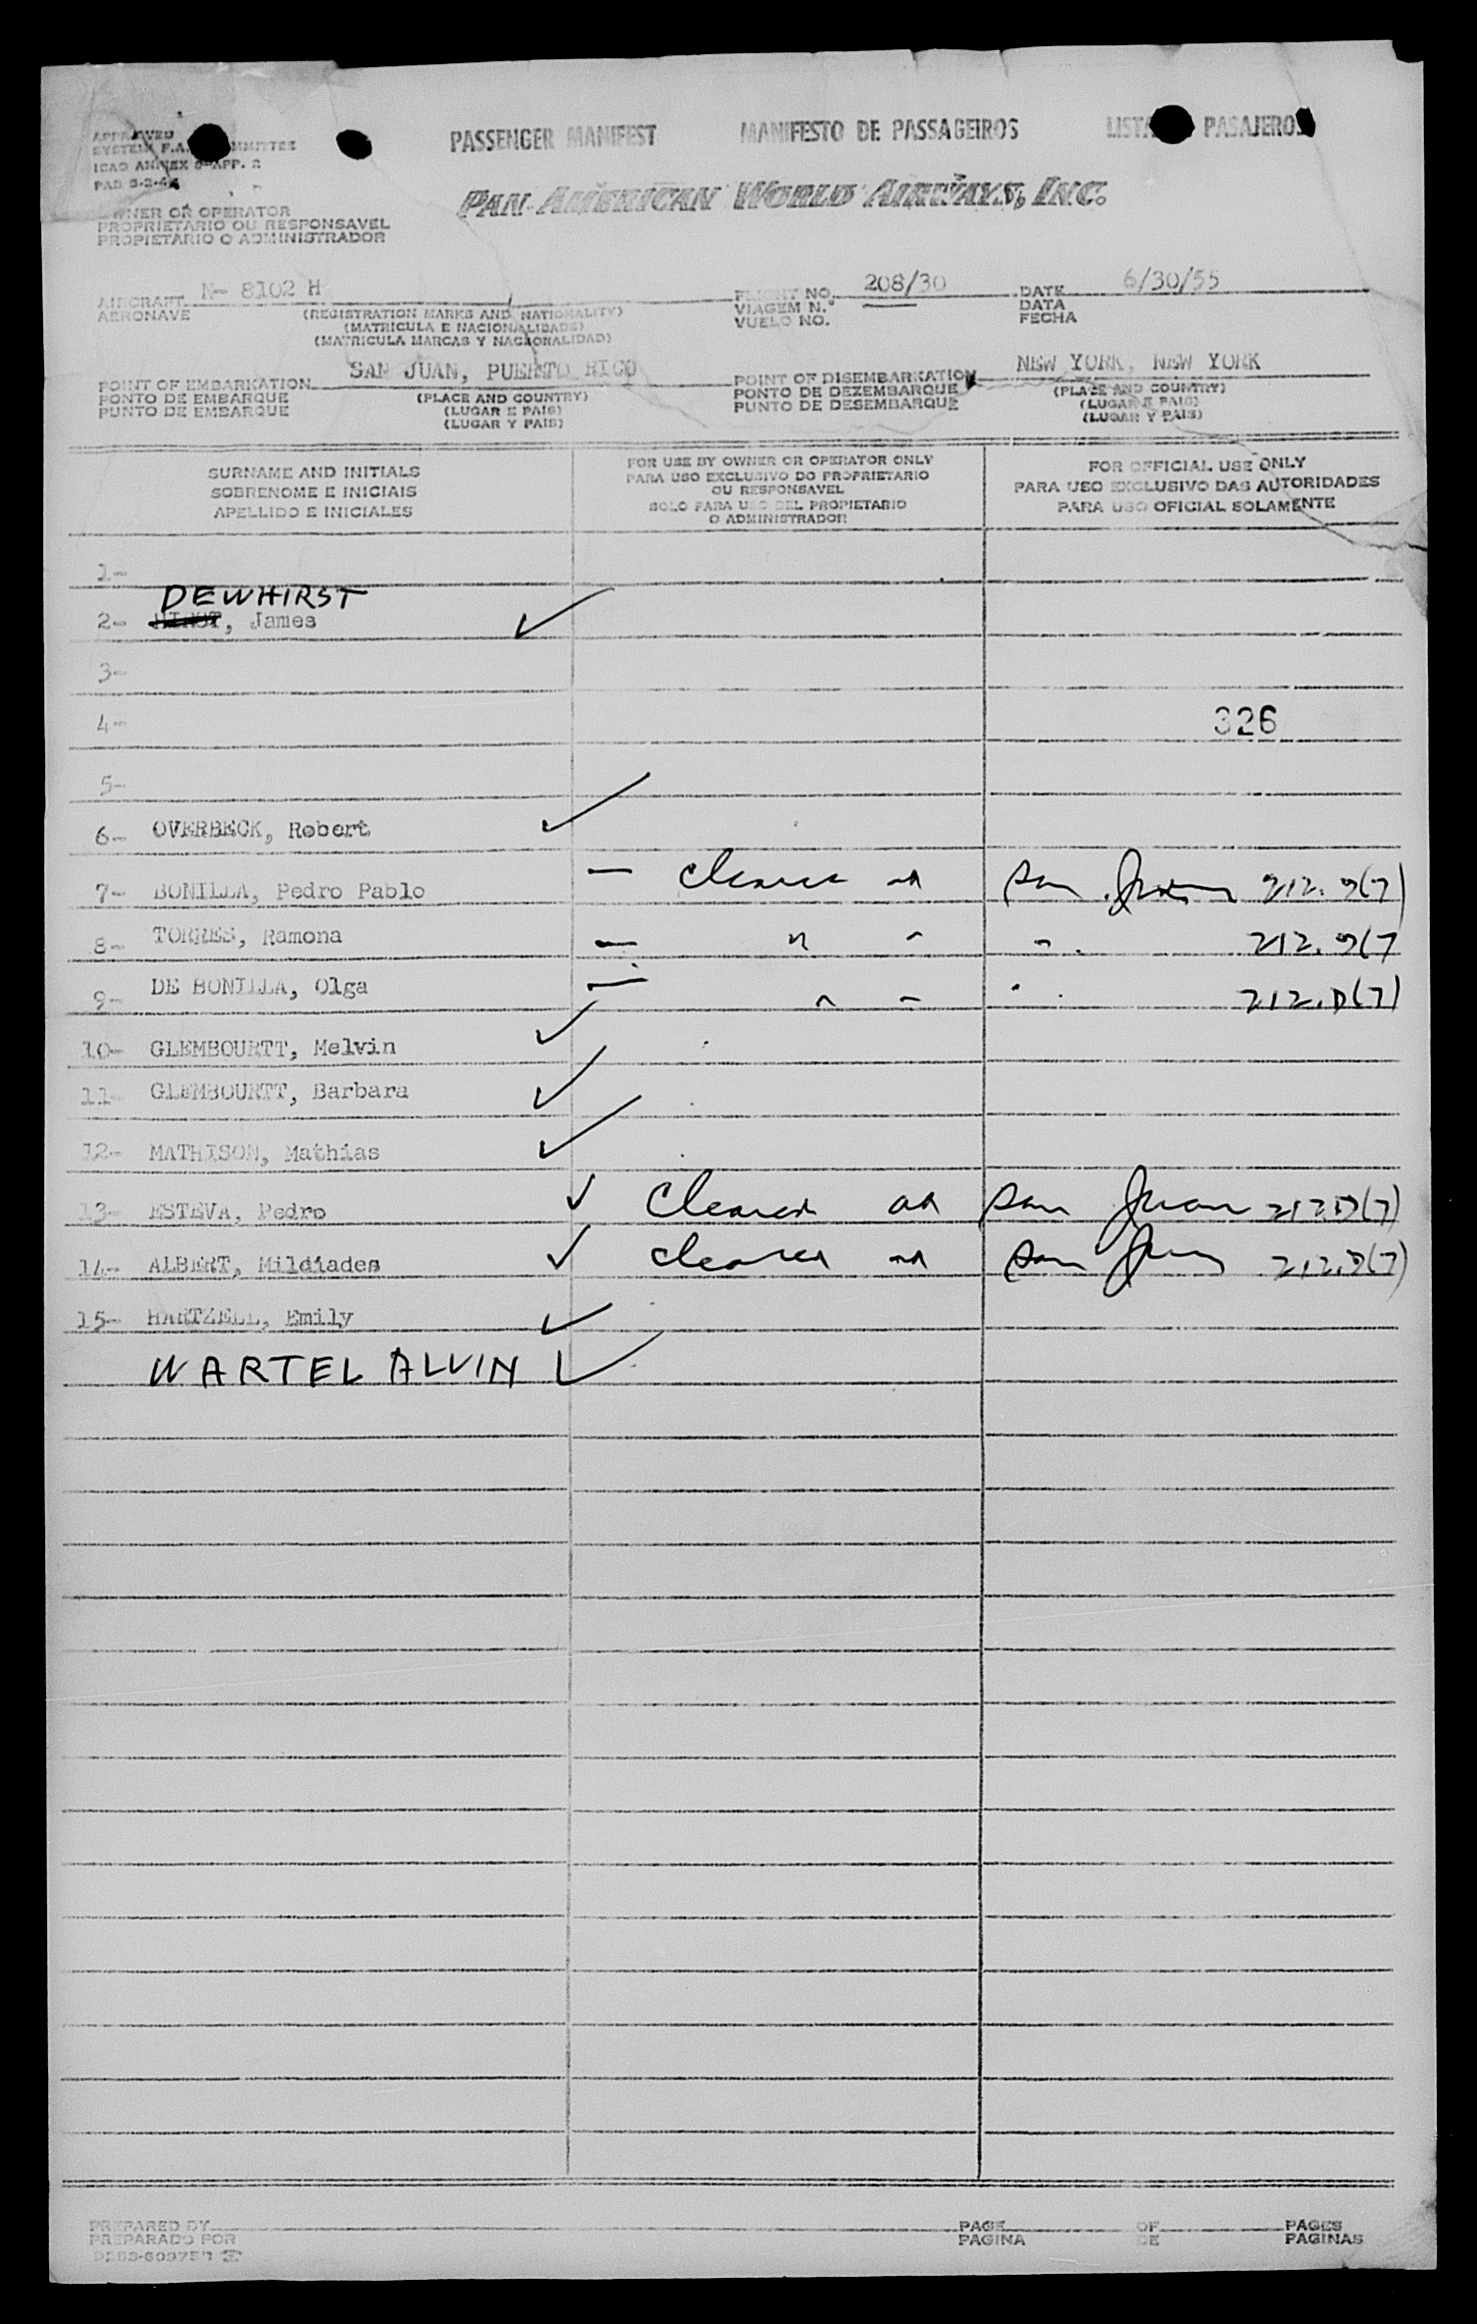 PASSENGER MANIFEST MANIFESTO DE PASSAGEIROS LISTA PASAJEROS
APPROVED
SYSTEM F.A.
ICAO ANNEX 9-APP. 2
PAD
PAN AMERICAN WORLD AIRWAYS, INC.
OWNER OR OPERATOR
PROPRIETARIO OU RESPONSAVEL
PROPIETARIO O ADMINISTRADOR
AIRCRAFT N- 8102 H FLIGHT NO. 208/30 DATE 6/30/55
AERONAVE (REGISTRATION MARKS AND NATIONALITY) VIAGEM N.° DATA
(MATRICULA E NACIONALIDADE) VUELO NO. FECHA
(MATRICULA MARCAS Y NACIONALIDAD)
POINT OF EMBARKATION SAN JUAN, PUERTO RICO POINT OF DISEMBARKATION NEW YORK, NEW YORK
PONTO DE EMBARQUE (PLACE AND COUNTRY) PONTO DE DEZEMBARQUE (PLACE AND COUNTRY)
PUNTO DE EMBARQUE (LUGAR E PAIS) PUNTO DE DESEMBARQUE (LUGAR E PAIS)
(LUGAR Y PAIS) (LUGAR Y PAIS)
SURNAME AND INITIALS
SOBRENOME E INICIAIS
APELLIDO E INICIALES
FOR USE BY OWNER OR OPERATOR ONLY
PARA USO EXCLUSIVO DO PROPRIETARIO
OU RESPONSAVEL
SOLO PARA USO DEL PROPIETARIO
O ADMINISTRADOR
FOR OFFICIAL USE ONLY
PARA USO EXCLUSIVO DAS AUTORIDADES
PARA USO OFICIAL SOLAMENTE
1-
DEWHIRST
2- , James ✓
3-
4- 326
5-
6- OVERBECK, Robert ✓
7- BONILLA, Pedro Pablo — Cleared at San Juan 212.D(7)
8- TORRES, Ramona — " " " 212.D(7
9- DE BONILLA, Olga — " " " 212.D(7)
10- GLEMBOURTT, Melvin ✓
11- GLEMBOURTT, Barbara ✓
12- MATHISON, Mathias ✓
13- ESTEVA, Pedro ✓ Cleared at San Juan 212.D(7)
14- ALBERT, Mildiades ✓ Cleared at San Juan 212.D(7)
15- HARTZELL, Emily ✓
WARTEL ALVIN ✓
PREPARED BY PAGE OF PAGES
PREPARADO POR PAGINA DE PAGINAS